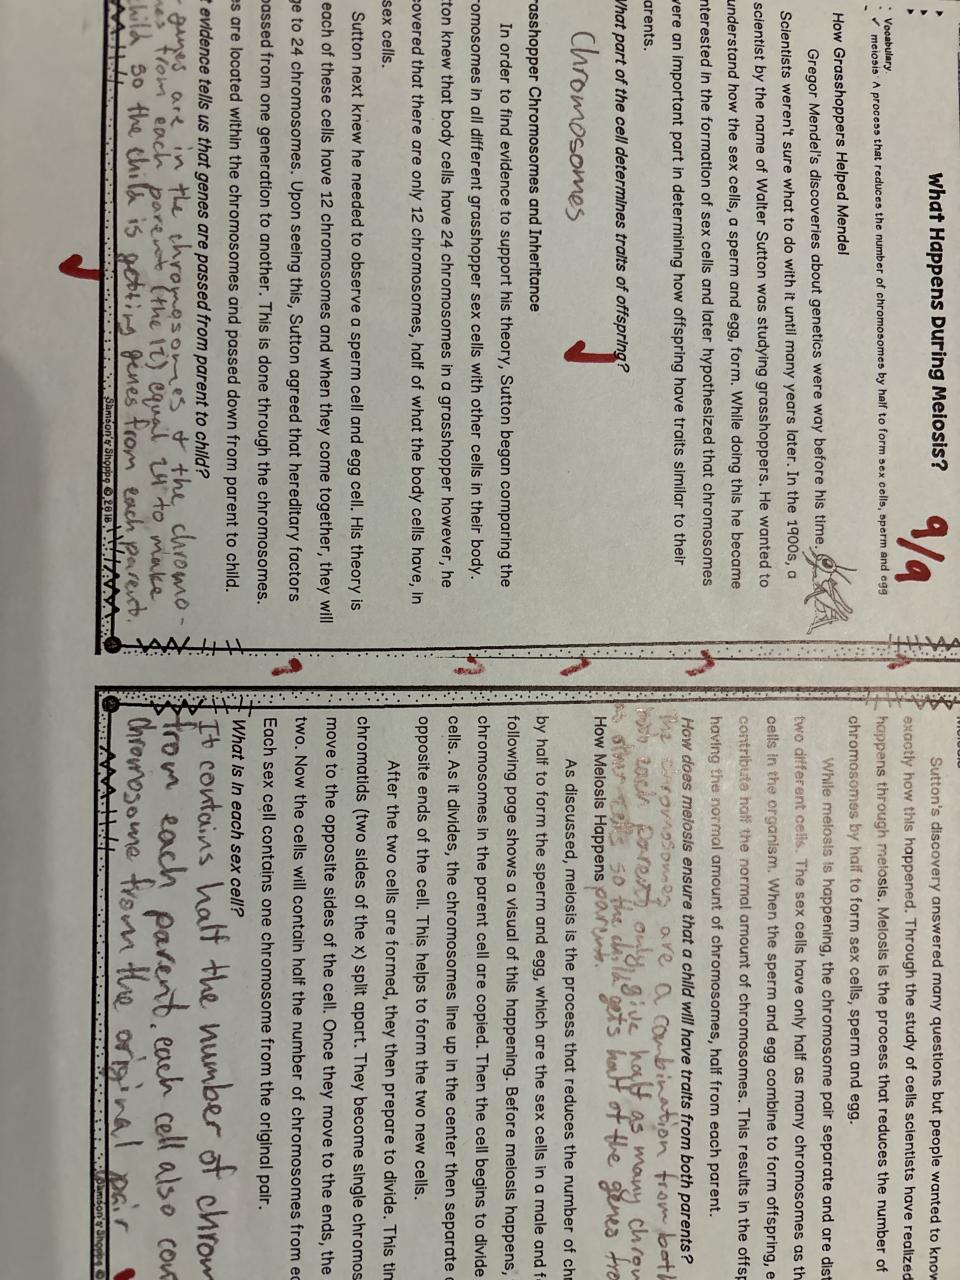 What Happens During Meiosis?
9/9
Vocabulary
✓ meiosis: A process that reduces the number of chromosomes by half to form sex cells, sperm and egg
How Grasshoppers Helped Mendel
Gregor Mendel's discoveries about genetics were way before his time.
Scientists weren't sure what to do with it until many years later. In the 1900s, a
scientist by the name of Walter Sutton was studying grasshoppers. He wanted to
understand how the sex cells, a sperm and egg, form. While doing this he became
nterested in the formation of sex cells and later hypothesized that chromosomes
vere an important part in determining how offspring have traits similar to their
arents.
What part of the cell determines traits of offspring?
Chromosomes
rasshopper Chromosomes and Inheritance
In order to find evidence to support his theory, Sutton began comparing the
romosomes in all different grasshopper sex cells with other cells in their body.
ton knew that body cells have 24 chromosomes in a grasshopper however, he
covered that there are only 12 chromosomes, half of what the body cells have, in
sex cells.
Sutton next knew he needed to observe a sperm cell and egg cell. His theory is
each of these cells have 12 chromosomes and when they come together, they will
ge to 24 chromosomes. Upon seeing this, Sutton agreed that hereditary factors
passed from one generation to another. This is done through the chromosomes.
es are located within the chromosomes and passed down from parent to child.
t evidence tells us that genes are passed from parent to child?
genes are in the chromosomes & the chromo-
mes from each parent (the 12) equal 24 to make
child so the child is getting genes from each parent.
Samson's Shoppe © 2018
Sutton's discovery answered many questions but people wanted to know
exactly how this happened. Through the study of cells scientists have realize
happens through meiosis. Meiosis is the process that reduces the number of
chromosomes by half to form sex cells, sperm and egg.
While meiosis is happening, the chromosome pair separate and are dist
two different cells. The sex cells have only half as many chromosomes as th
cells in the organism. When the sperm and egg combine to form offspring, e
contribute half the normal amount of chromosomes. This results in the offsp
having the normal amount of chromosomes, half from each parent.
How does meiosis ensure that a child will have traits from both parents?
The chromosomes are a combination from both
each parent only give half as many chrom
as other cells so the child gets half of the genes fro
parent.
How Meiosis Happens
As discussed, meiosis is the process that reduces the number of chr
by half to form the sperm and egg, which are the sex cells in a male and f
following page shows a visual of this happening. Before meiosis happens,
chromosomes in the parent cell are copied. Then the cell begins to divide
cells. As it divides, the chromosomes line up in the center then separate
opposite ends of the cell. This helps to form the two new cells.
After the two cells are formed, they then prepare to divide. This tim
chromatids (two sides of the x) split apart. They become single chromos
move to the opposite sides of the cell. Once they move to the ends, the
two. Now the cells will contain half the number of chromosomes from ea
Each sex cell contains one chromosome from the original pair.
What is in each sex cell?
It contains half the number of chrom
from each parent. each cell also con
chromosome from the original pair
Samson's Shoppe ©